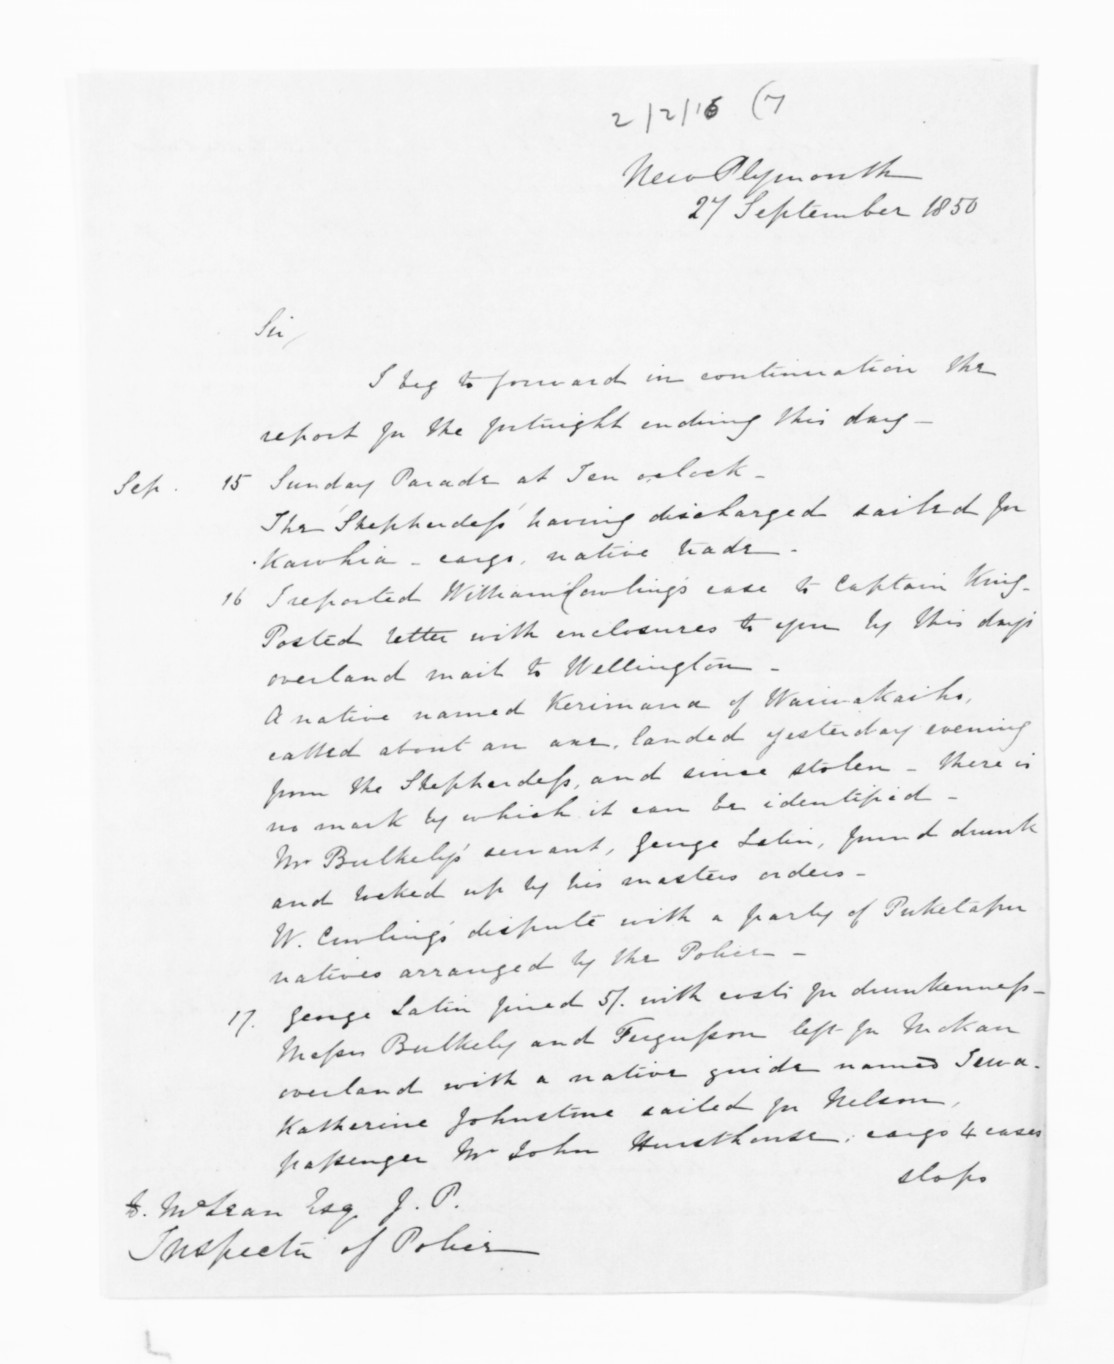 2/2/16 (7
New Plymouth
27 September 1850
Sir,
I beg to forward in continuation the
report for the fortnight ending this day -
Sep. 15 Sunday Parade at Ten o,clock -
The 'Shepherdess' having discharged sailed for
Kawhia - cargo, native trade -
16 I reported William Cowling's case to Captain King -
Posted letter with enclosures to you by this day's
overland mail to Wellington -
A native named Kerimana of Waiwakaiho,
called about an axe, landed yesterday evening
from the Shepherdess, and since stolen - there is
no mark by which it can be identified -
Mr Bulkely's servant, George Latin, found drunk
and locked up by his masters orders -
W. Cowling's dispute with a party of Puketapu
natives arranged by the Police -
17. George Latin fined 5/. with costs for drunkenness -
Messrs Bulkely and Fergusson left for Mokau
overland with a native guide named Tewa.
Katherine Johnstone sailed for Nelson,
passenger Mr John Hursthouse; cargo 4 cases
slops
D. McLean Esq. J. P.
Inspector of Police